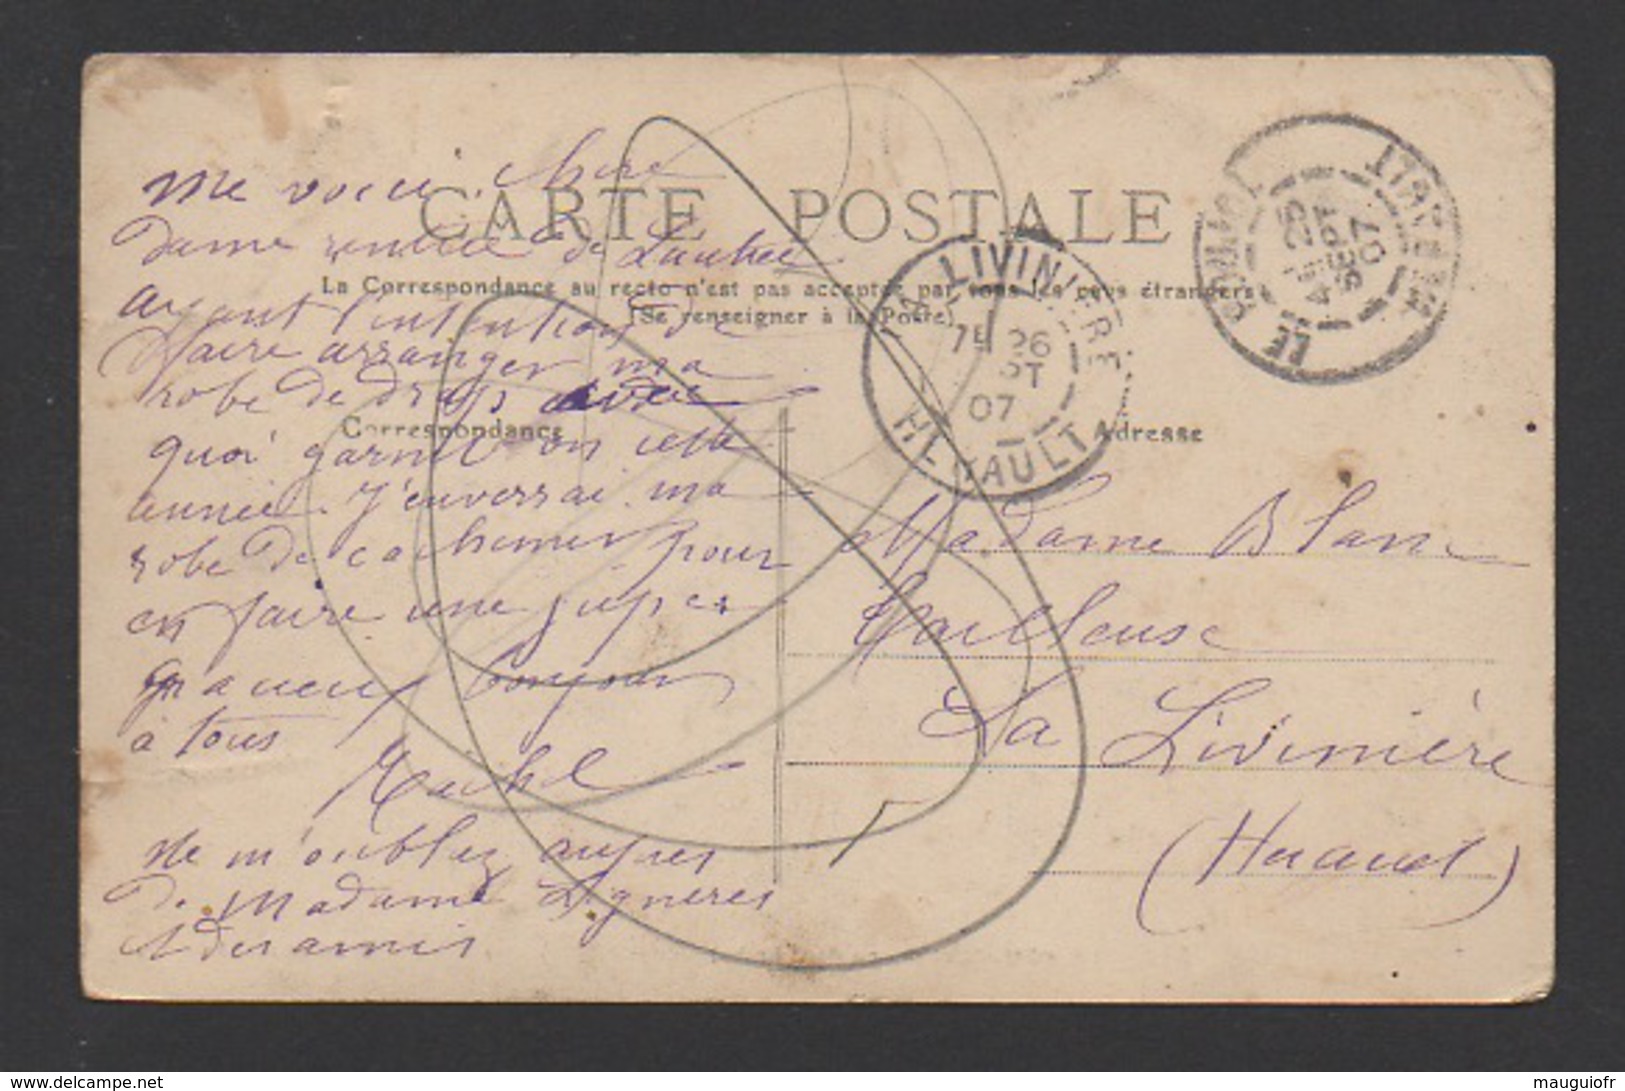 CARTE POSTALE
La Correspondance au recto n'est pas acceptée par tous les pays étrangers
(Se renseigner à la Poste)
Correspondance
Adresse
me voici chère
dame rentrée de Lautrec
ayant l'intention de
faire arranger ma
robe de drap avec
quoi garnit on cette
année. J'enverrai ma
robe de cachemir pour
en faire une jupe
bonjour
à tous
ne m'oubliez aupres
de Madame Lignères
et des amis
Madame Blanc
Tailleuse
La Livinière
(Herault)
LA LIVINIÈRE
7E 26
PT
07
HERAULT
LE POUJOL
25
SEPT
07
HERAULT
www.delcampe.net
mauguiofr